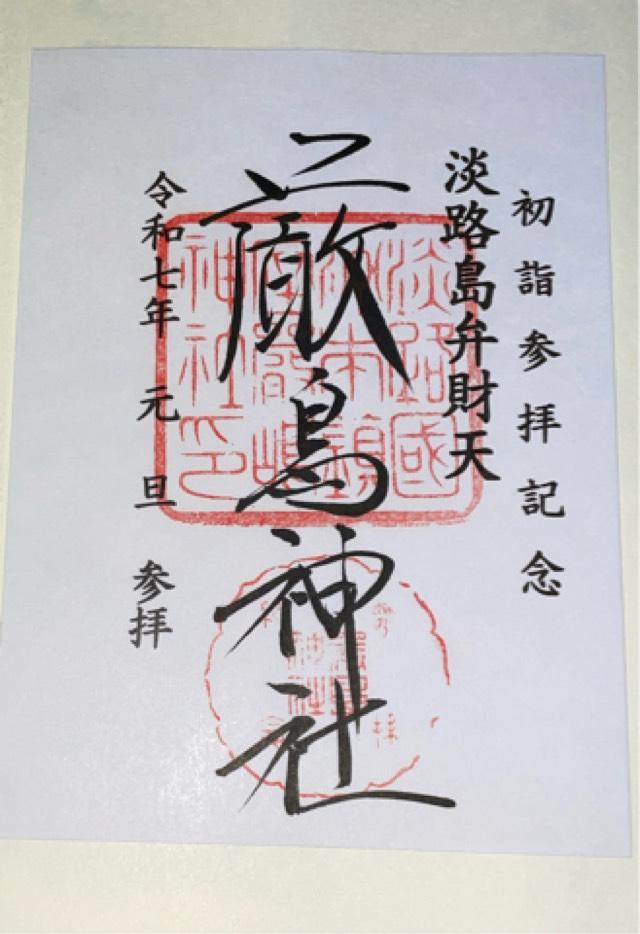 初詣参拝記念
淡路島弁財天
厳島神社
令和七年 元旦 参拝
淡路國
神社印